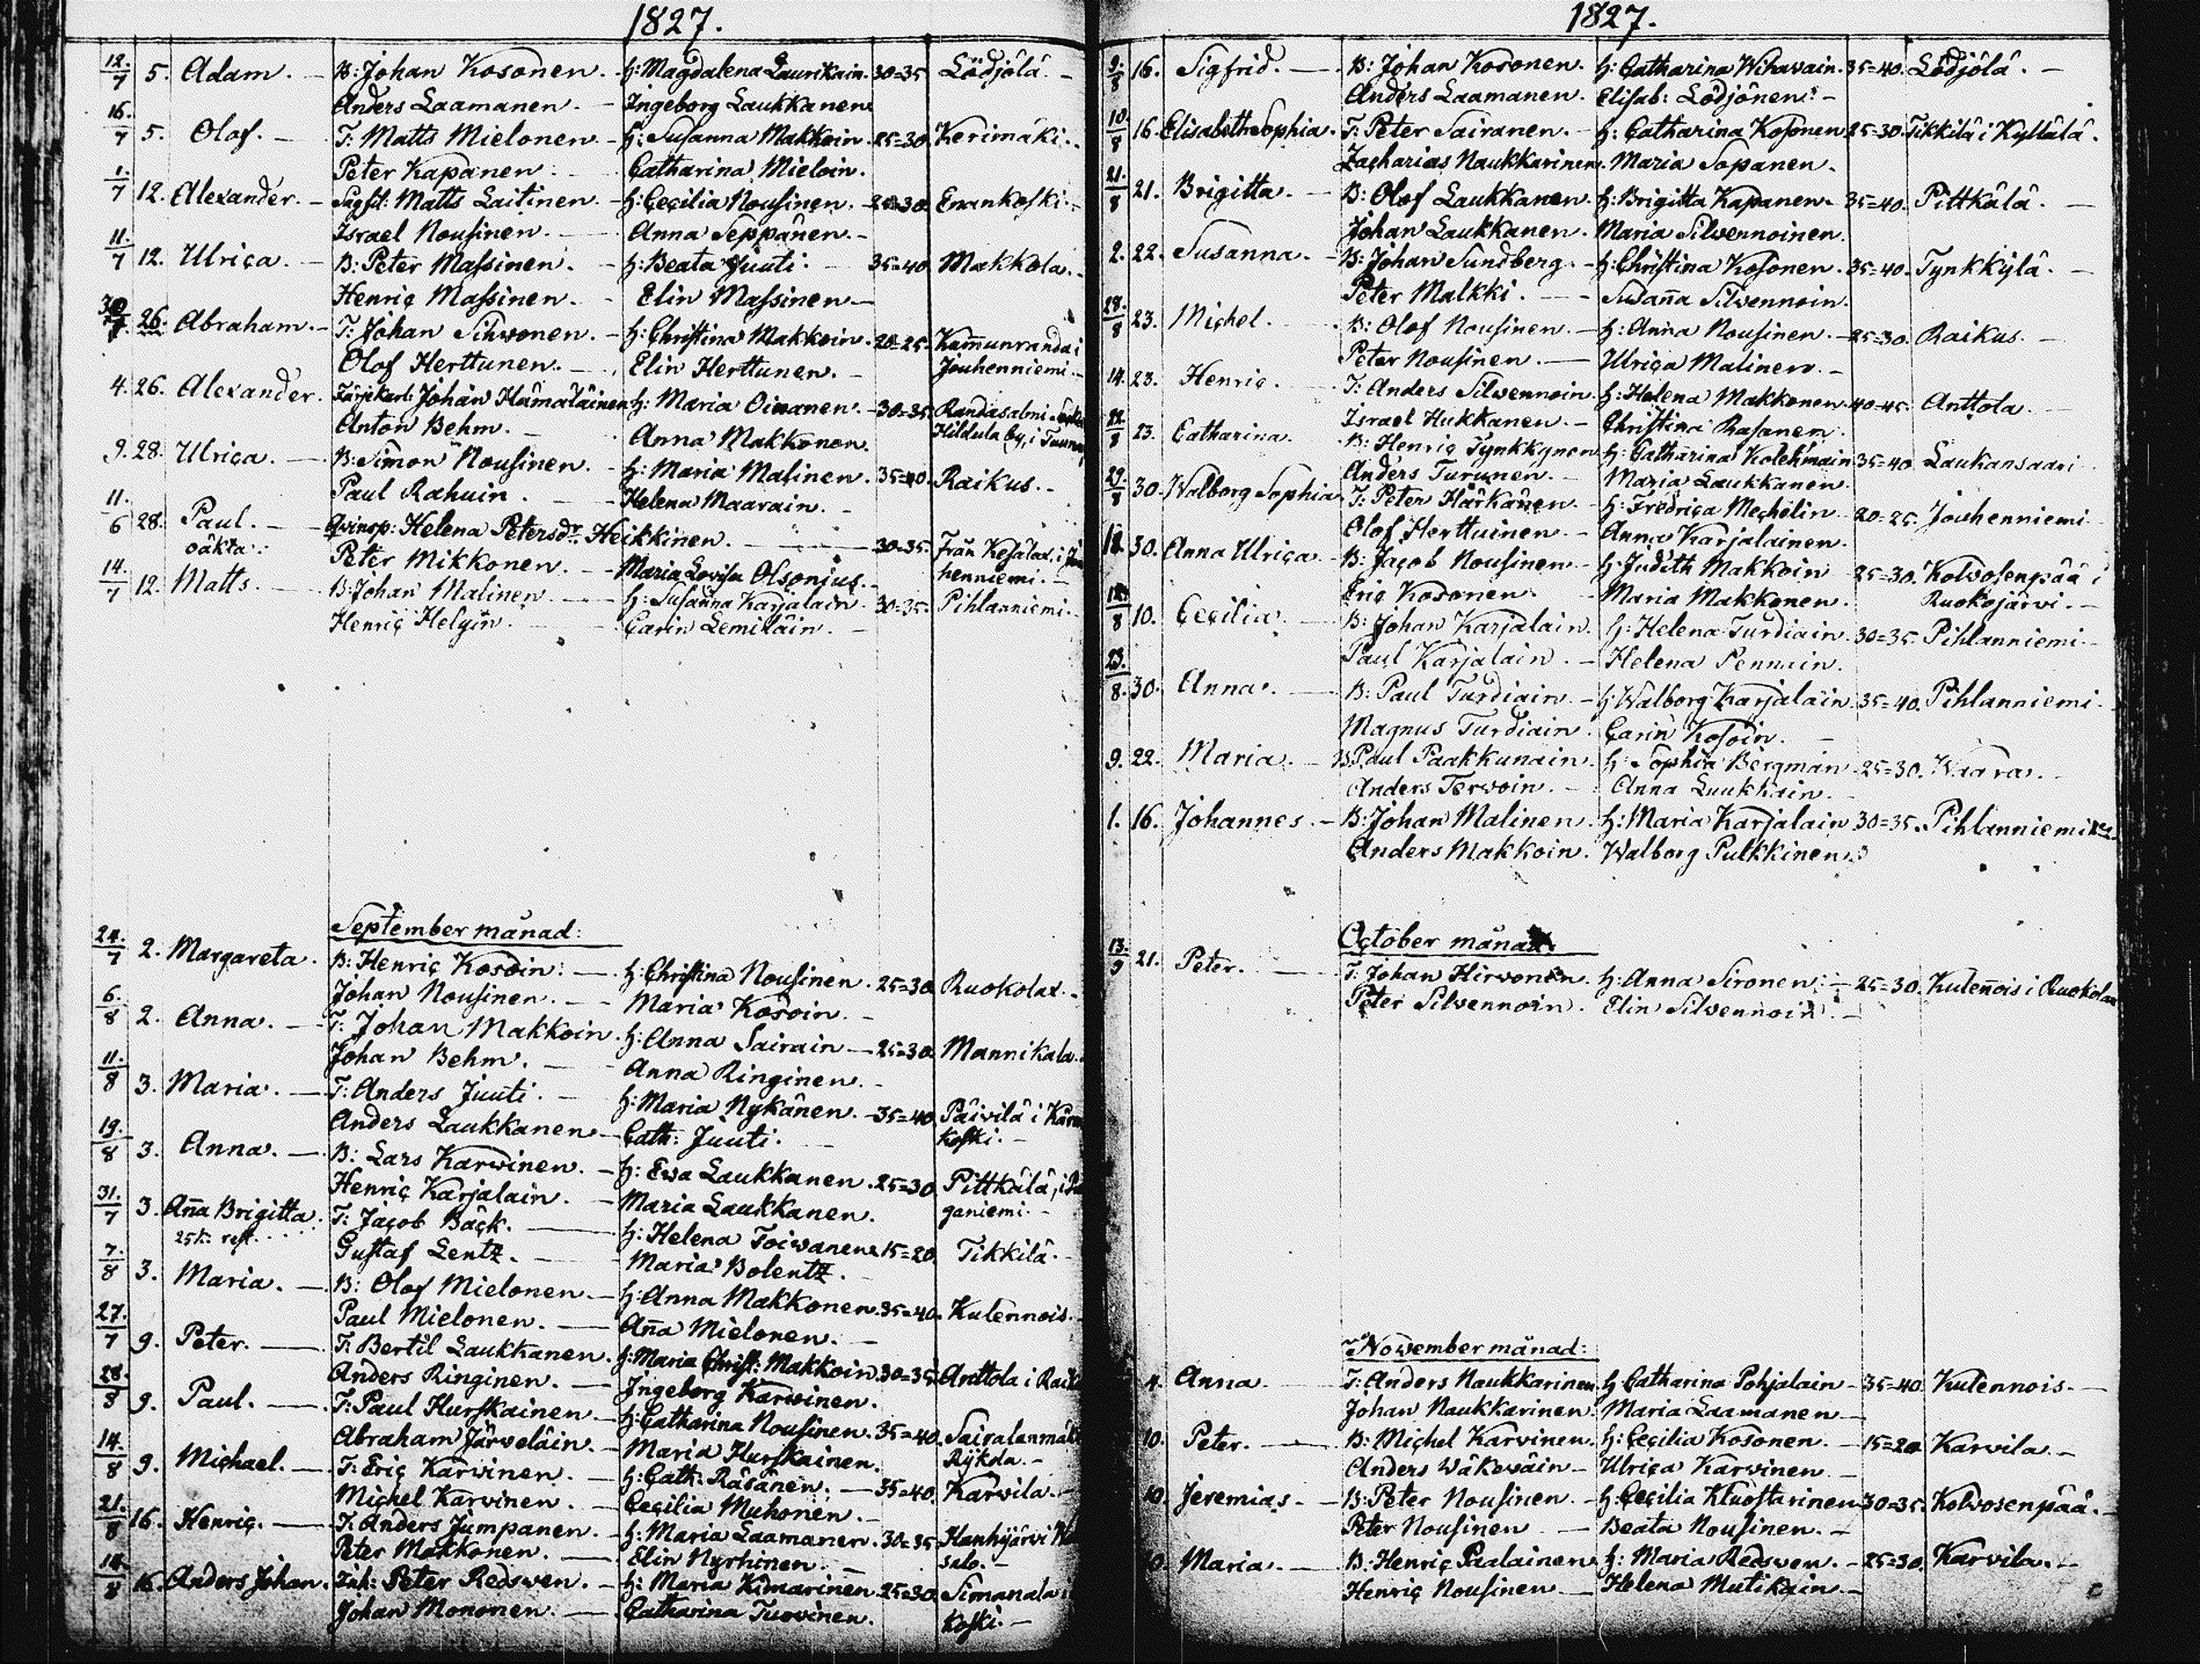 1827.
12./7 5. Adam. B: Johan Kosonen. H: Magdalena Laurikain. 30=35 Lödjölä.
Anders Laamanen. Ingeborg Laukkanen
16./7 5. Olof. T: Matts Mielonen. H: Susanna Makkoin. 25=30. Kerimäki.
Peter Kapanen. Catharina Mieloin.
1./7 12. Alexander. Matts Laitinen. H: Cecilia Nousinen. 25=30. Enankoski.
Israel Nousinen. Anna Seppänen.
11./7 12. Ulrica. B: Peter Massinen. H: Beata Juuti. 35=40. Makkola.
Henric Massinen. Elin Massinen
26. Abraham. T: Johan Silwonen. H: Christina Makkoin. 20=25. Kamunranda i
Olof Herttunen. Elin Herttunen. Jouhenniemi.
4. 26. Alexander. Johan Hämäläinen H: Maria Oinanen. 30=35. Randasalmi
Anton Behm. Anna Makkonen. Hildula by, i
9. 28. Ulrica. B: Simon Nousinen. H: Maria Malinen. 35=40. Raikus.
Paul Rahuin. Helena Maarain.
11./6 28. Paul. Qvinsp: Helena Petersdr. Heikkinen. 30=35. Från Kesälax, i
oäkta. Peter Mikkonen. Maria Lovisa Olsonius. henniemi.
14./7 12. Matts. B: Johan Malinen. H: Susanna Karjalain. 30=35. Pihlanniemi.
Henric Helgin. Carin Lemiläin.
September månad:
24./7 2. Margareta. B: Henric Kosoin. H: Christina Nousinen. 25=30. Ruokolax.
Johan Nousinen. Maria Kosoin.
6./8 2. Anna. T: Johan Makkoin. H: Anna Sairain 25=30. Mannikala.
Johan Behm. Anna Ringinen.
11./8 3. Maria. T: Anders Juuti. H: Maria Nykänen. 35=40. Päivilä i
Anders Laukkanen Cath: Juuti. koski.
19./8 3. Anna. B: Lars Karvinen. H: Ewa Laukkanen. 25=30. Pittkälä, i
Henric Karjalain. Maria Laukkanen. ganiemi.
31./7 3. Aña Brigitta. T: Jacob Bäck. H: Helena Toiwanen. 15=20. Tikkilä.
Gustaf Lentz. Maria Bolentz.
7./8 3. Maria. B: Olof Mielonen. H: Anna Makkonen. 35=40. Kulennois.
Paul Mielonen. Aña Mielonen.
27./7 9. Peter. T: Bertil Laukkanen. H: Maria Christ: Makkoin 30=35. Anttola i
Anders Ringinen. Ingeborg Karvinen.
28./8 9. Paul. T: Paul Hurskainen. H: Catharina Nousinen. 35=40.
Abraham Järveläin. Maria Hurskainen. Rykola.
14./8 9. Michael. T: Eric Karvinen. H: Cath: Räsänen. 35=40. Karvila.
Michel Karvinen. Cecilia Muhonen.
21./8 16. Henric. T: Anders Jumpanen. H: Maria Laamanen. 30=35 Hanhijärvi
Peter Makkonen. Elin Nyrhinen. salo.
14./8 16. Anders Johan. Inh: Peter Redswen. H: Maria Kimarinen 25=30. Simanala
Johan Mononen. Catharina Tuovinen. koski.
1827.
9./8 16. Sigfrid. B: Johan Kosonen. H: Catharina Wihavain. 35=40. Lödjölä.
Anders Laamanen. Elisab: Lödjönen.
10./8 16. Elisabeth Sophia. T: Peter Sairanen. H: Catharina Kosonen 25=30. Tikkilä i Kyllälä.
Zacharias Naukkarinen. Maria Sopanen.
21./8 21. Brigitta. B: Olof Laukkanen. H: Brigitta Kapanen. 35=40. Pittkälä.
Johan Laukkanen. Maria Silwennoinen.
2. 22. Susanna. B: Johan Sundberg. H: Christina Kosonen. 35=40. Tynkkylä.
Peter Malkki. Susaña Silwennoin.
28./8 23. Michel. B: Olof Nousinen. H: Anna Nousinen. 25=30. Raikus.
Peter Nousinen. Ulrica Malinen.
14. 23. Henric. T: Anders Silwennoin. H: Helena Makkonen. 40=45. Anttola.
Israel Hukkanen. Christina Rasanen.
22./8 23. Catharina. B: Henric Tynkkynen H: Catharina Kolehmain 35=40. Laukansaari
Anders Turunen. Maria Laukkanen.
29./8 30. Walborg Sophia T: Peter Härkänen. H: Fredrica Mechelin 20=25. Jouhenniemi.
Olof Herttuinen. Anna Karjalainen.
30. Anna Ulrica. B: Jacob Nousinen. H: Judith Makkoin 25=30. Kolvosenpää i
Eric Kosonen. Maria Makkonen. Ruokojärvi.
12./8 10. Cecilia. B: Johan Karjalain. H: Helena Turdiain. 30=35. Pihlanniemi.
Paul Karjalain. Helena Pennain.
23./8 30. Anna. B: Paul Turdiain. H: Walborg Karjalain. 35=40. Pihlanniemi.
Magnus Turdiain. Carin Kosoin.
9. 22. Maria. B: Paul Paakkunain. H: Sophia Bergman. 25=30. Waara.
Anders Tervoin. Anna Luukkain.
1. 16. Johannes. B: Johan Malinen. H: Maria Karjalain. 30=35. Pihlanniemi
Anders Makkoin. Walborg Pulkkinen.
October månad.
13./9 21. Peter. T: Johan Hirvonen. H: Anna Sironen. 25=30. Kulennois i Ruokolax
Peter Silvennoin. Elin Silvennoin.
November månad:
4. Anna. T: Anders Naukkarinen H: Catharina Pohjalain. 35=40. Kulennois.
Johan Naukkarinen. Maria Laamanen
10. Peter. B: Michel Karvinen. H: Cecilia Kosonen. 15=20. Karvila.
Anders Wäkewäin. Ulrica Karvinen
10. Jeremias. B: Peter Nousinen. H: Cecilia Kluostarinen 30=35. Kolvosenpää.
Peter Nousinen Beata Nousinen.
10. Maria. B: Henric Paalainen. H: Maria Redswen. 25=30. Karvila.
Henric Nousinen. Helena Mutikain.